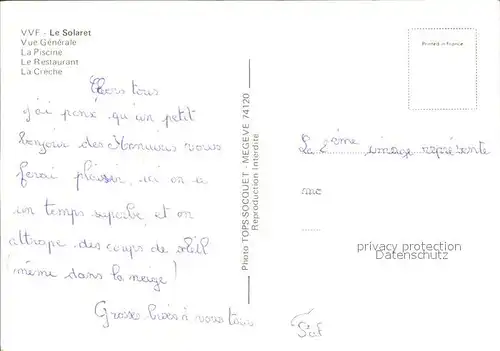 VVF - Le Solaret
Vue Générale
La Piscine
Le Restaurant
La Crèche
Chers tous
j'ai pensé qu'un petit
bonjour des vous
ferai plaisir, ici on a
un temps superbe et on
attrape des coups de soleil
(même dans la neige)
Grosses bises à vous tous
Photo TOPS SOCQUET - MEGEVE 74120
Reproduction Interdite
Printed in France
La 2ème image représente
privacy protection
Datenschutz